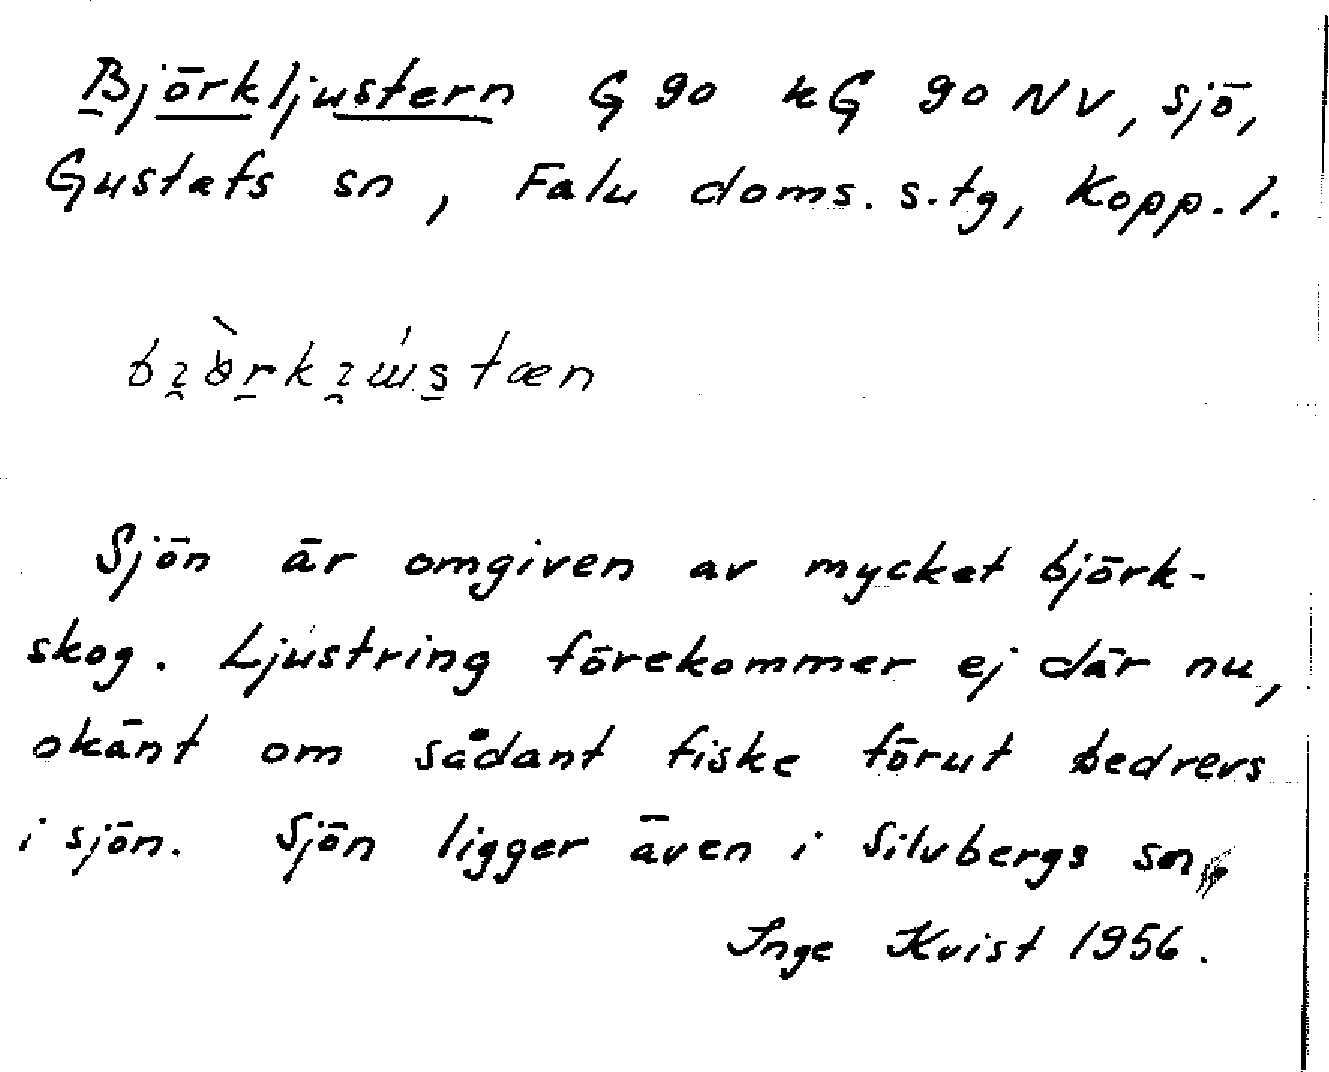 Björkljustern G 90 kG 90 NV, sjö,
Gustafs sn, Falu doms. s. tg, Kopp. l.
Sjön är omgiven av mycket björk-
skog. Ljustring förekommer ej där nu,
okänt om sådant fiske förut bedrevs
i sjön. Sjön ligger även i Silvbergs sn
Inge Kvist 1956.